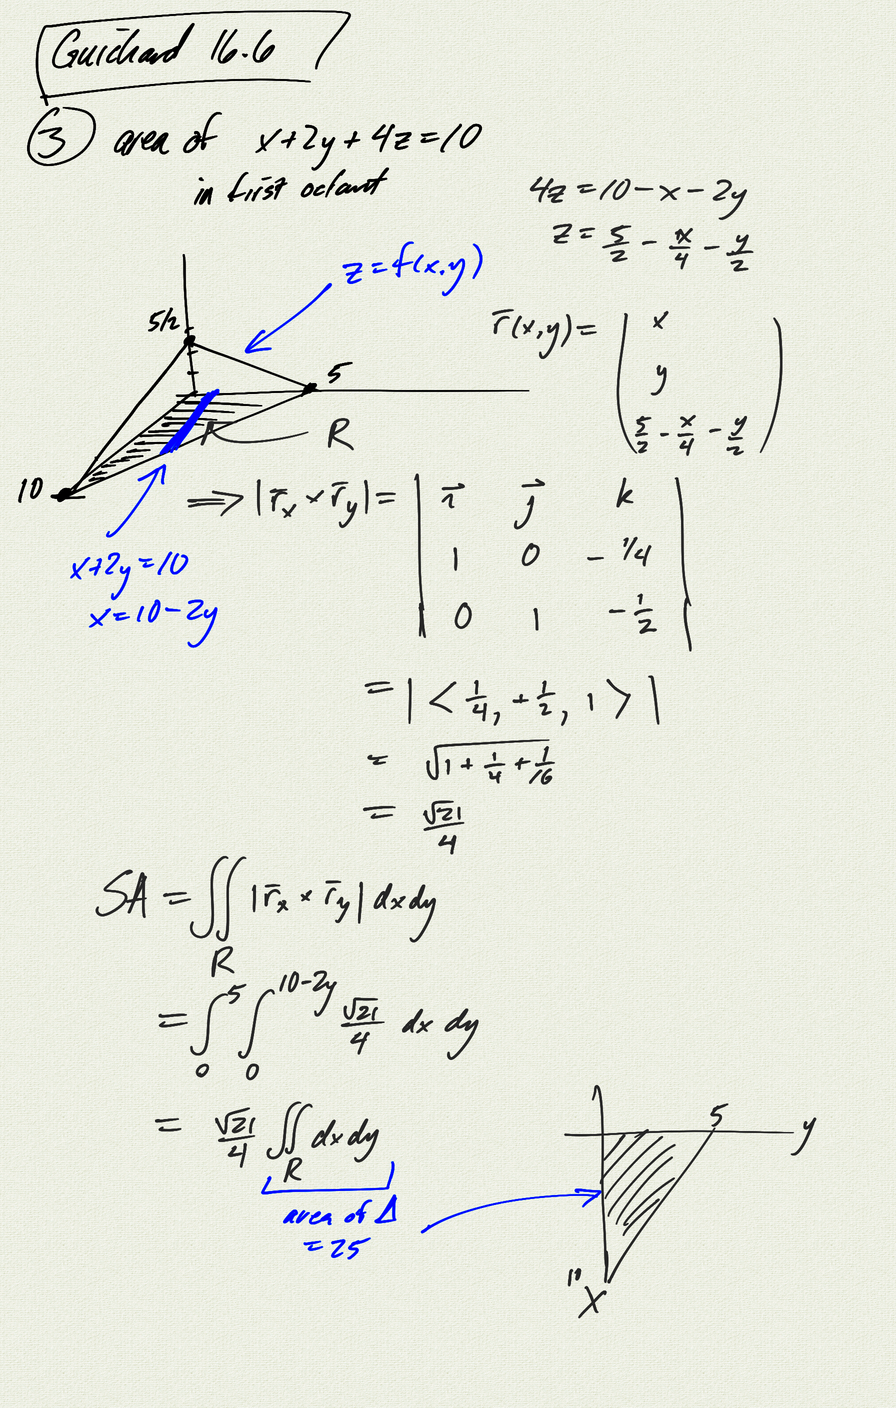 Guichard 16.6
③ area of x+2y+4z=10
in first octant
4z=10-x-2y
z=5/2-x/4-y/2
z=f(x,y)
5/2
5
R
10
x+2y=10
x=10-2y
r̄(x,y)=(x
y
5/2-x/4-y/2)
⟹|r̄x×r̄y|=|i⃗ j⃗ k
1 0 -1/4
0 1 -1/2|
=|<1/4,+1/2,1>|
=√(1+1/4+1/16)
=√21/4
SA=∬R|r̄x×r̄y|dxdy
=∫₀⁵∫₀^(10-2y) √21/4 dx dy
=√21/4 ∬R dxdy
area of Δ
=25
5
y
10
X